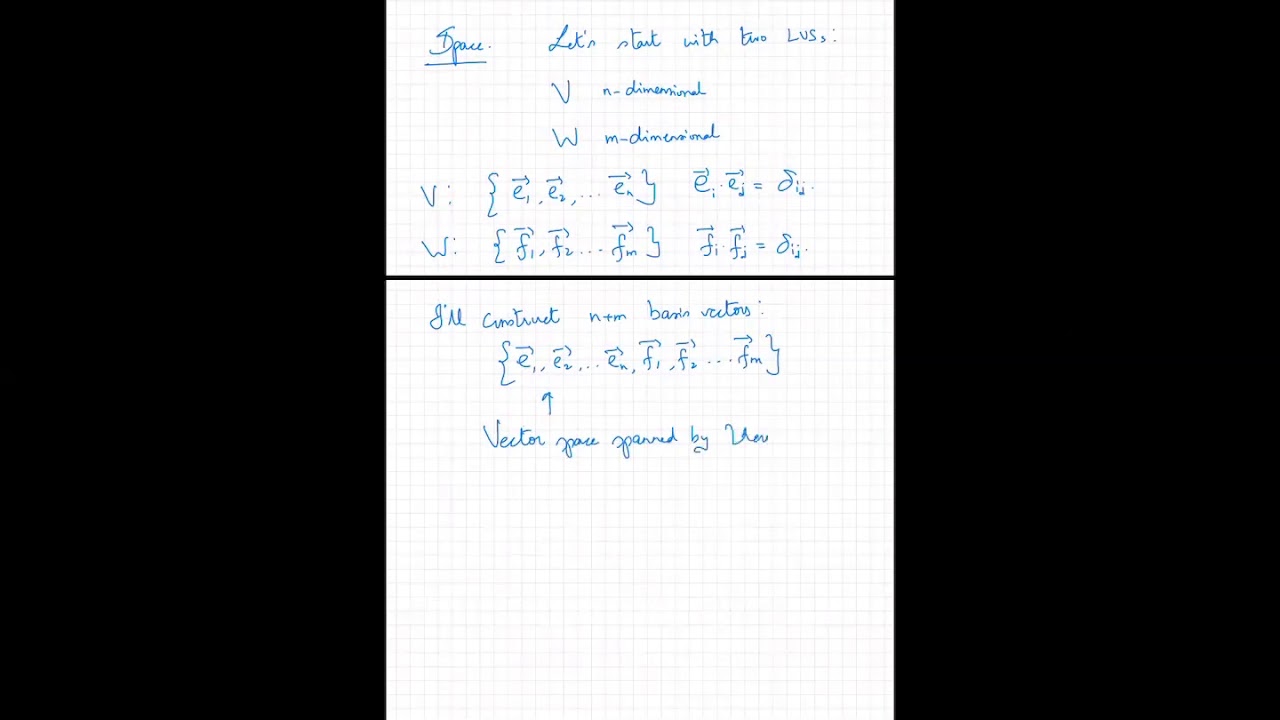 Space. Let's start with two LVSs:
V n-dimensional
W m-dimensional
V: { e⃗₁, e⃗₂, ... e⃗ₙ } e⃗ᵢ · e⃗ⱼ = δᵢⱼ.
W: { f⃗₁, f⃗₂ ... f⃗ₘ } f⃗ᵢ · f⃗ⱼ = δᵢⱼ.
I'll construct n+m basis vectors:
{ e⃗₁, e⃗₂, ... e⃗ₙ, f⃗₁, f⃗₂ ... f⃗ₘ }
↑
Vector space spanned by